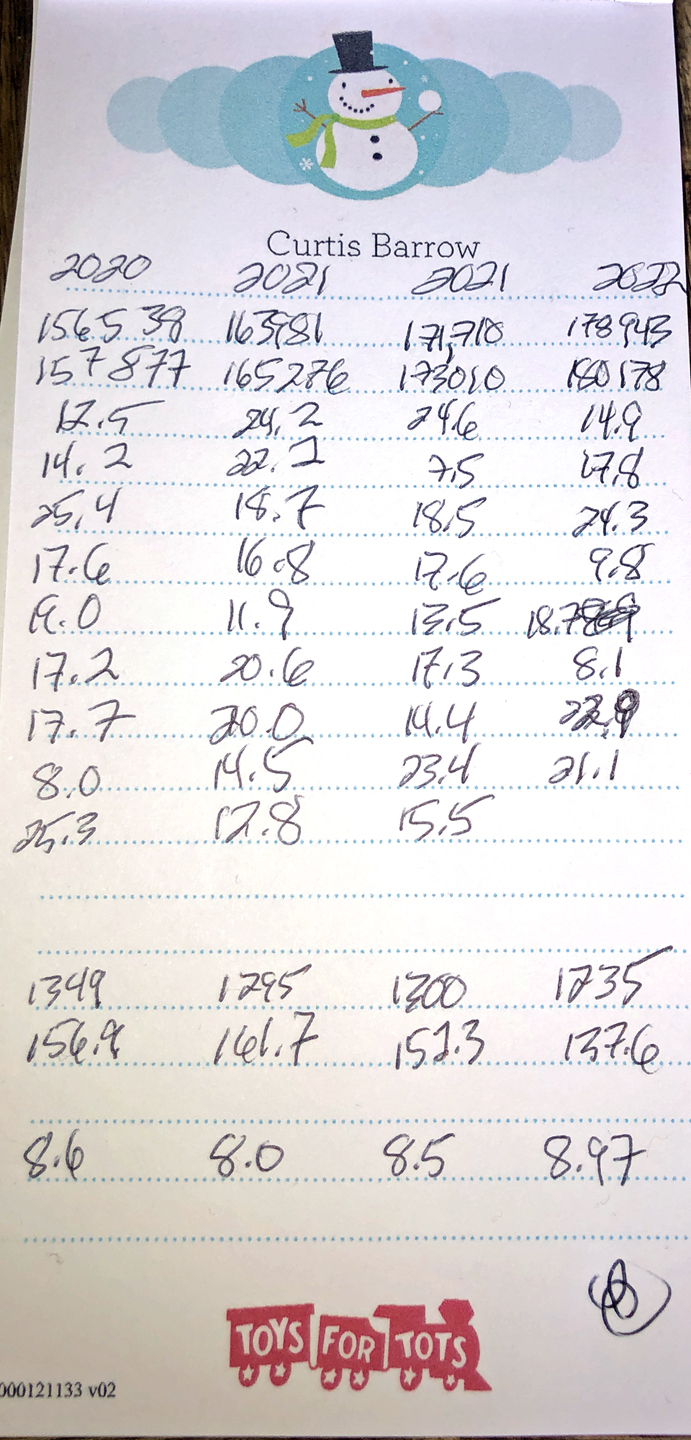 Curtis Barrow
2020 2021 2021 2022
156538 163981 171,710 178943
157877 165276 173010 180178
12.5 24.2 24.6 14.9
14.2 22.2 7.5 17.8
25.4 18.7 18.5 24.3
17.6 16.8 17.6 9.8
19.0 11.9 13.5 18.7
17.2 20.6 17.3 8.1
17.7 20.0 14.4 22.9
8.0 14.5 23.4 21.1
25.3 12.8 15.5
1349 1295 1300 1235
156.9 161.7 152.3 137.6
8.6 8.0 8.5 8.97
TOYS FOR TOTS
000121133 v02